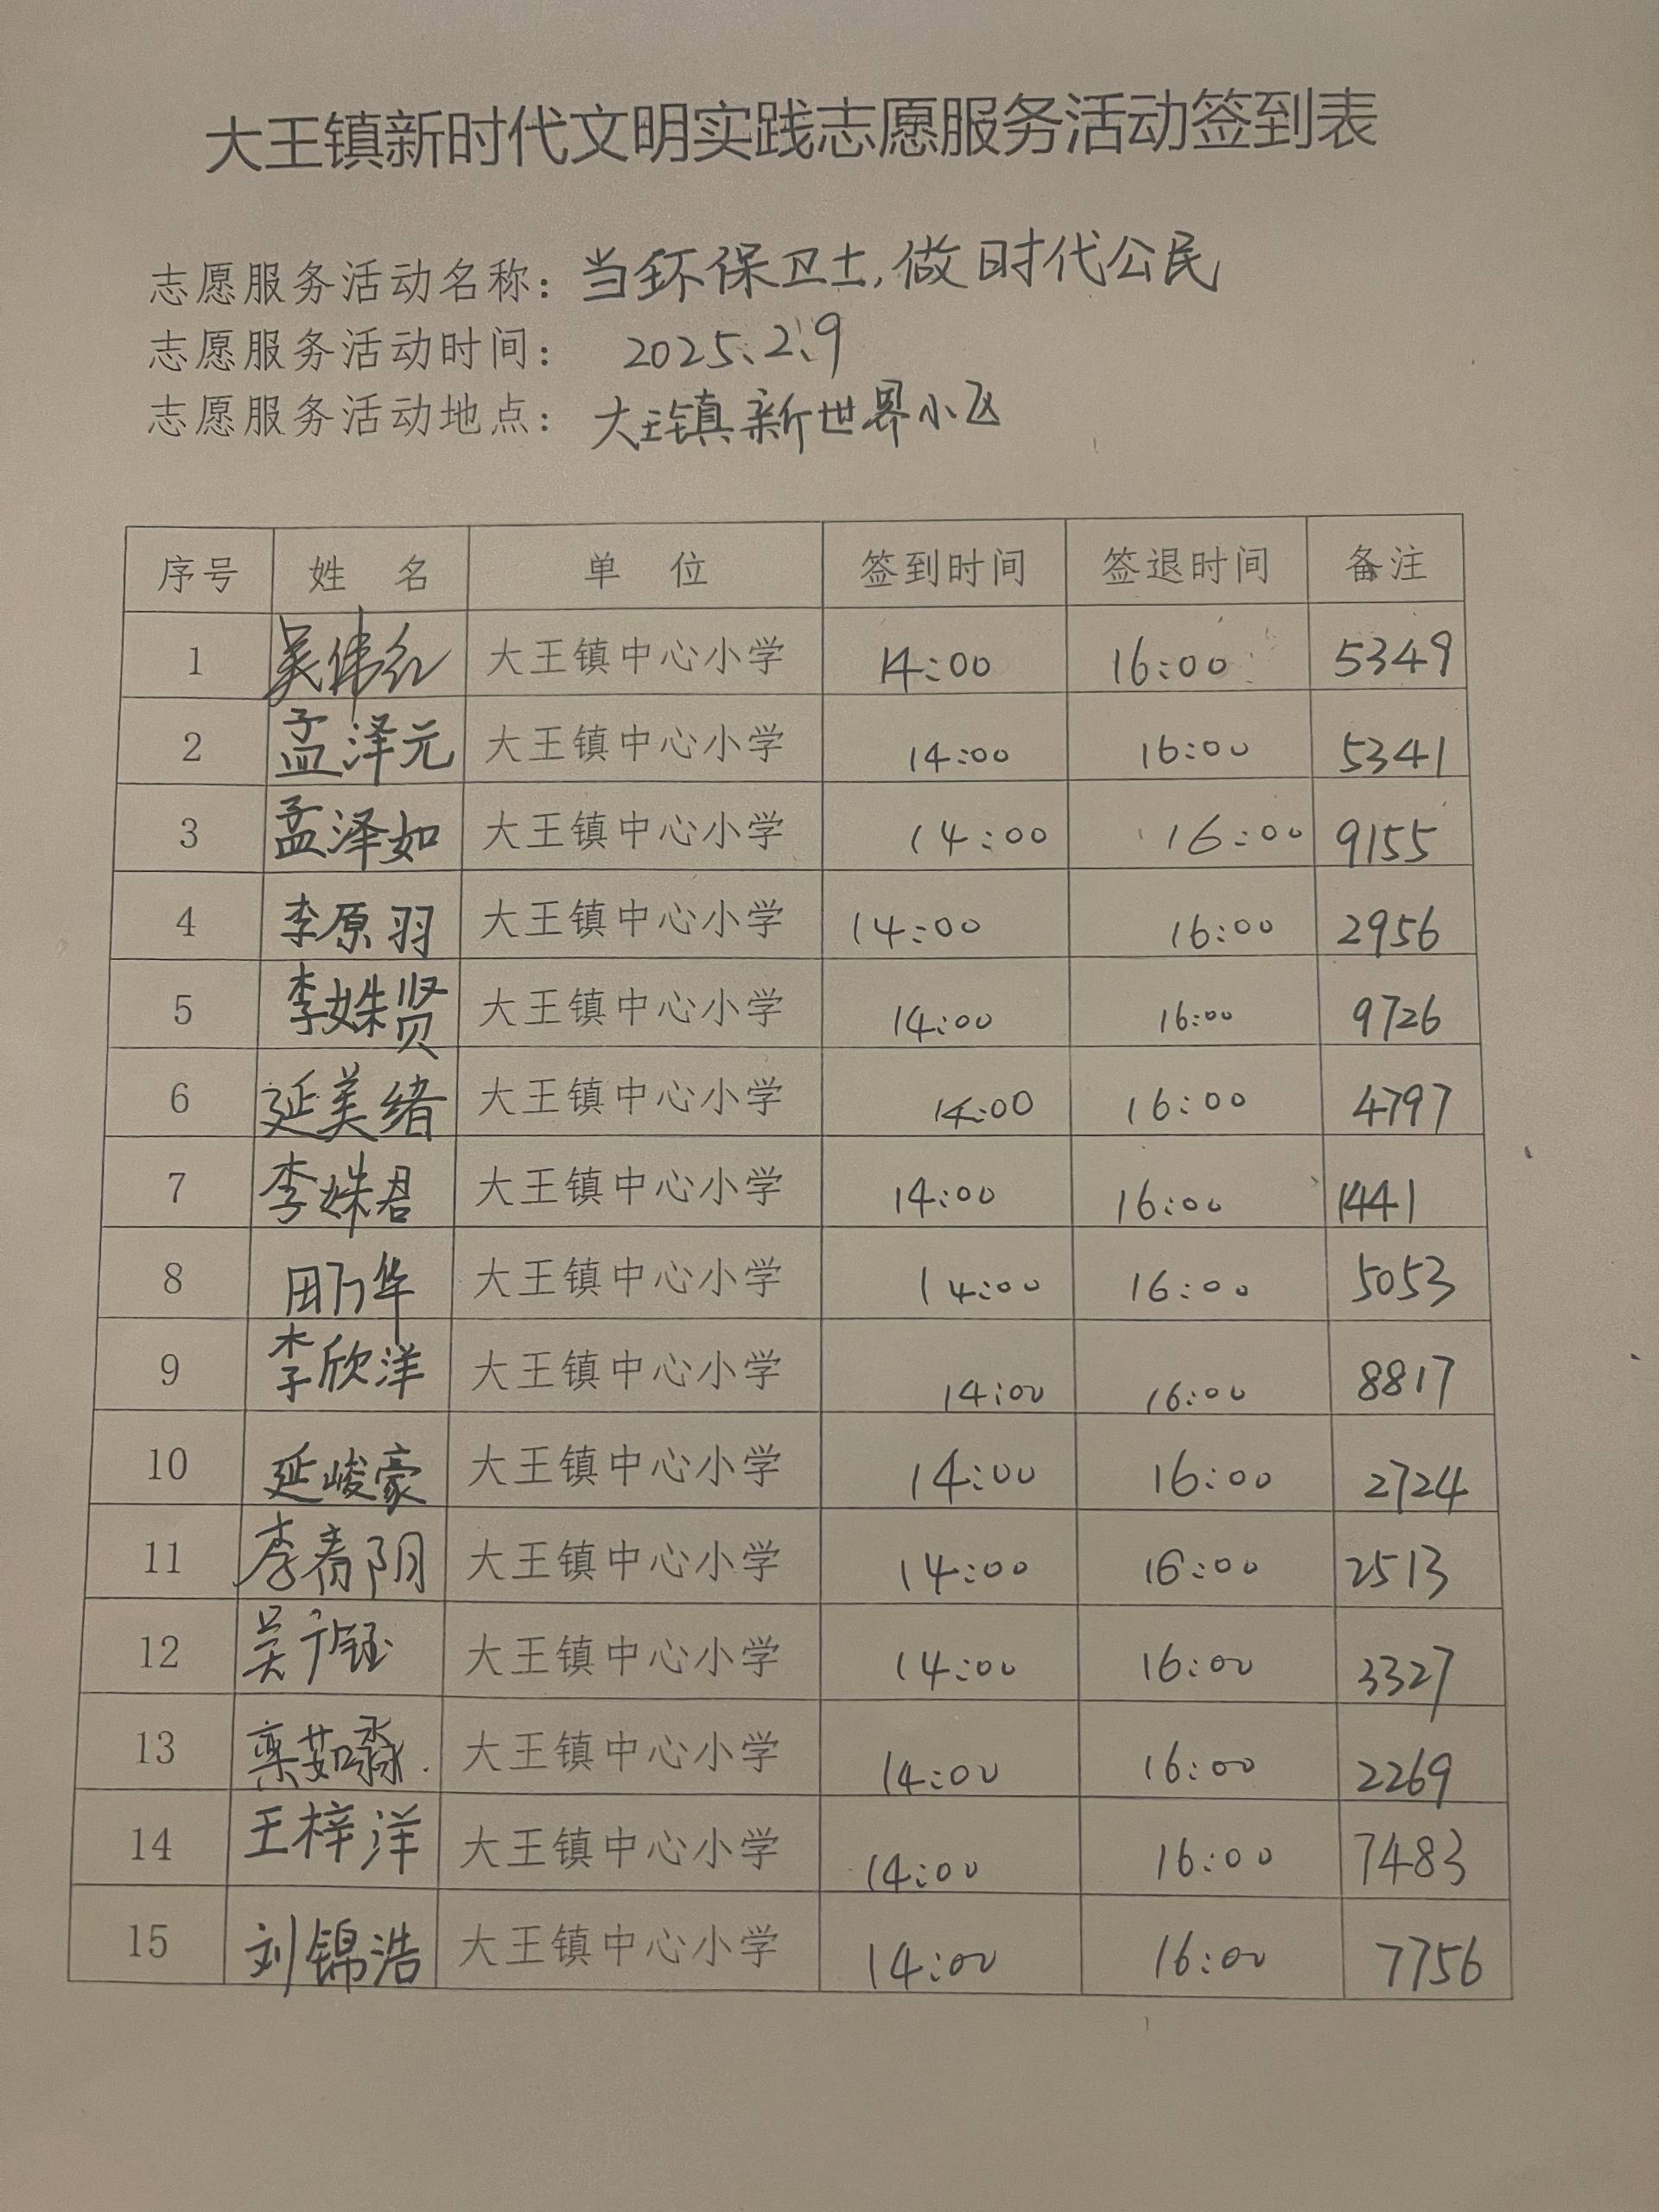 大王镇新时代文明实践志愿服务活动签到表
志愿服务活动名称：当环保卫士,做时代公民
志愿服务活动时间：2025、2、9
志愿服务活动地点：大王镇新世界小区
序号 姓 名 单 位 签到时间 签退时间 备注
1 吴伟红 大王镇中心小学 14:00 16:00 5349
2 孟泽元 大王镇中心小学 14:00 16:00 5341
3 孟泽如 大王镇中心小学 14:00 16:00 9155
4 李原羽 大王镇中心小学 14:00 16:00 2956
5 李姝贤 大王镇中心小学 14:00 16:00 9726
6 延美绪 大王镇中心小学 14:00 16:00 4797
7 李姝君 大王镇中心小学 14:00 16:00 1441
8 田乃华 大王镇中心小学 14:00 16:00 5053
9 李欣洋 大王镇中心小学 14:00 16:00 8817
10 延峻豪 大王镇中心小学 14:00 16:00 2724
11 李春阴 大王镇中心小学 14:00 16:00 2513
12 吴广钰 大王镇中心小学 14:00 16:00 3327
13 栾茹淼 大王镇中心小学 14:00 16:00 2269
14 王梓洋 大王镇中心小学 14:00 16:00 7483
15 刘锦浩 大王镇中心小学 14:00 16:00 7756